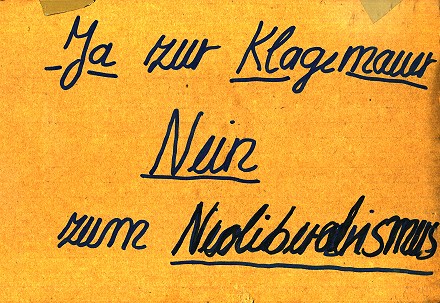 -Ja zur Klagemauer
Nein
zum Neoliberalismus